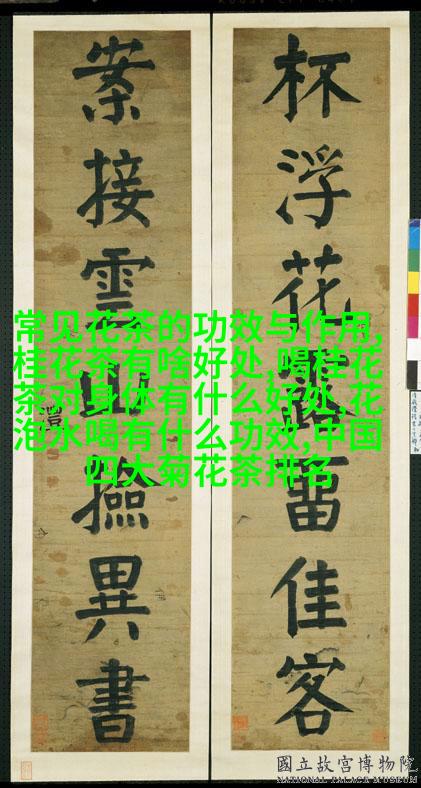 杯浮花露留佳客
案接雲山撿異書
常见花茶的功效与作用,
桂花茶有啥好处,喝桂花
茶对身体有什么好处,花
泡水喝有什么功效,中国
四大菊花茶排名
國立故宮博物院
NATIONAL PALACE MUSEUM